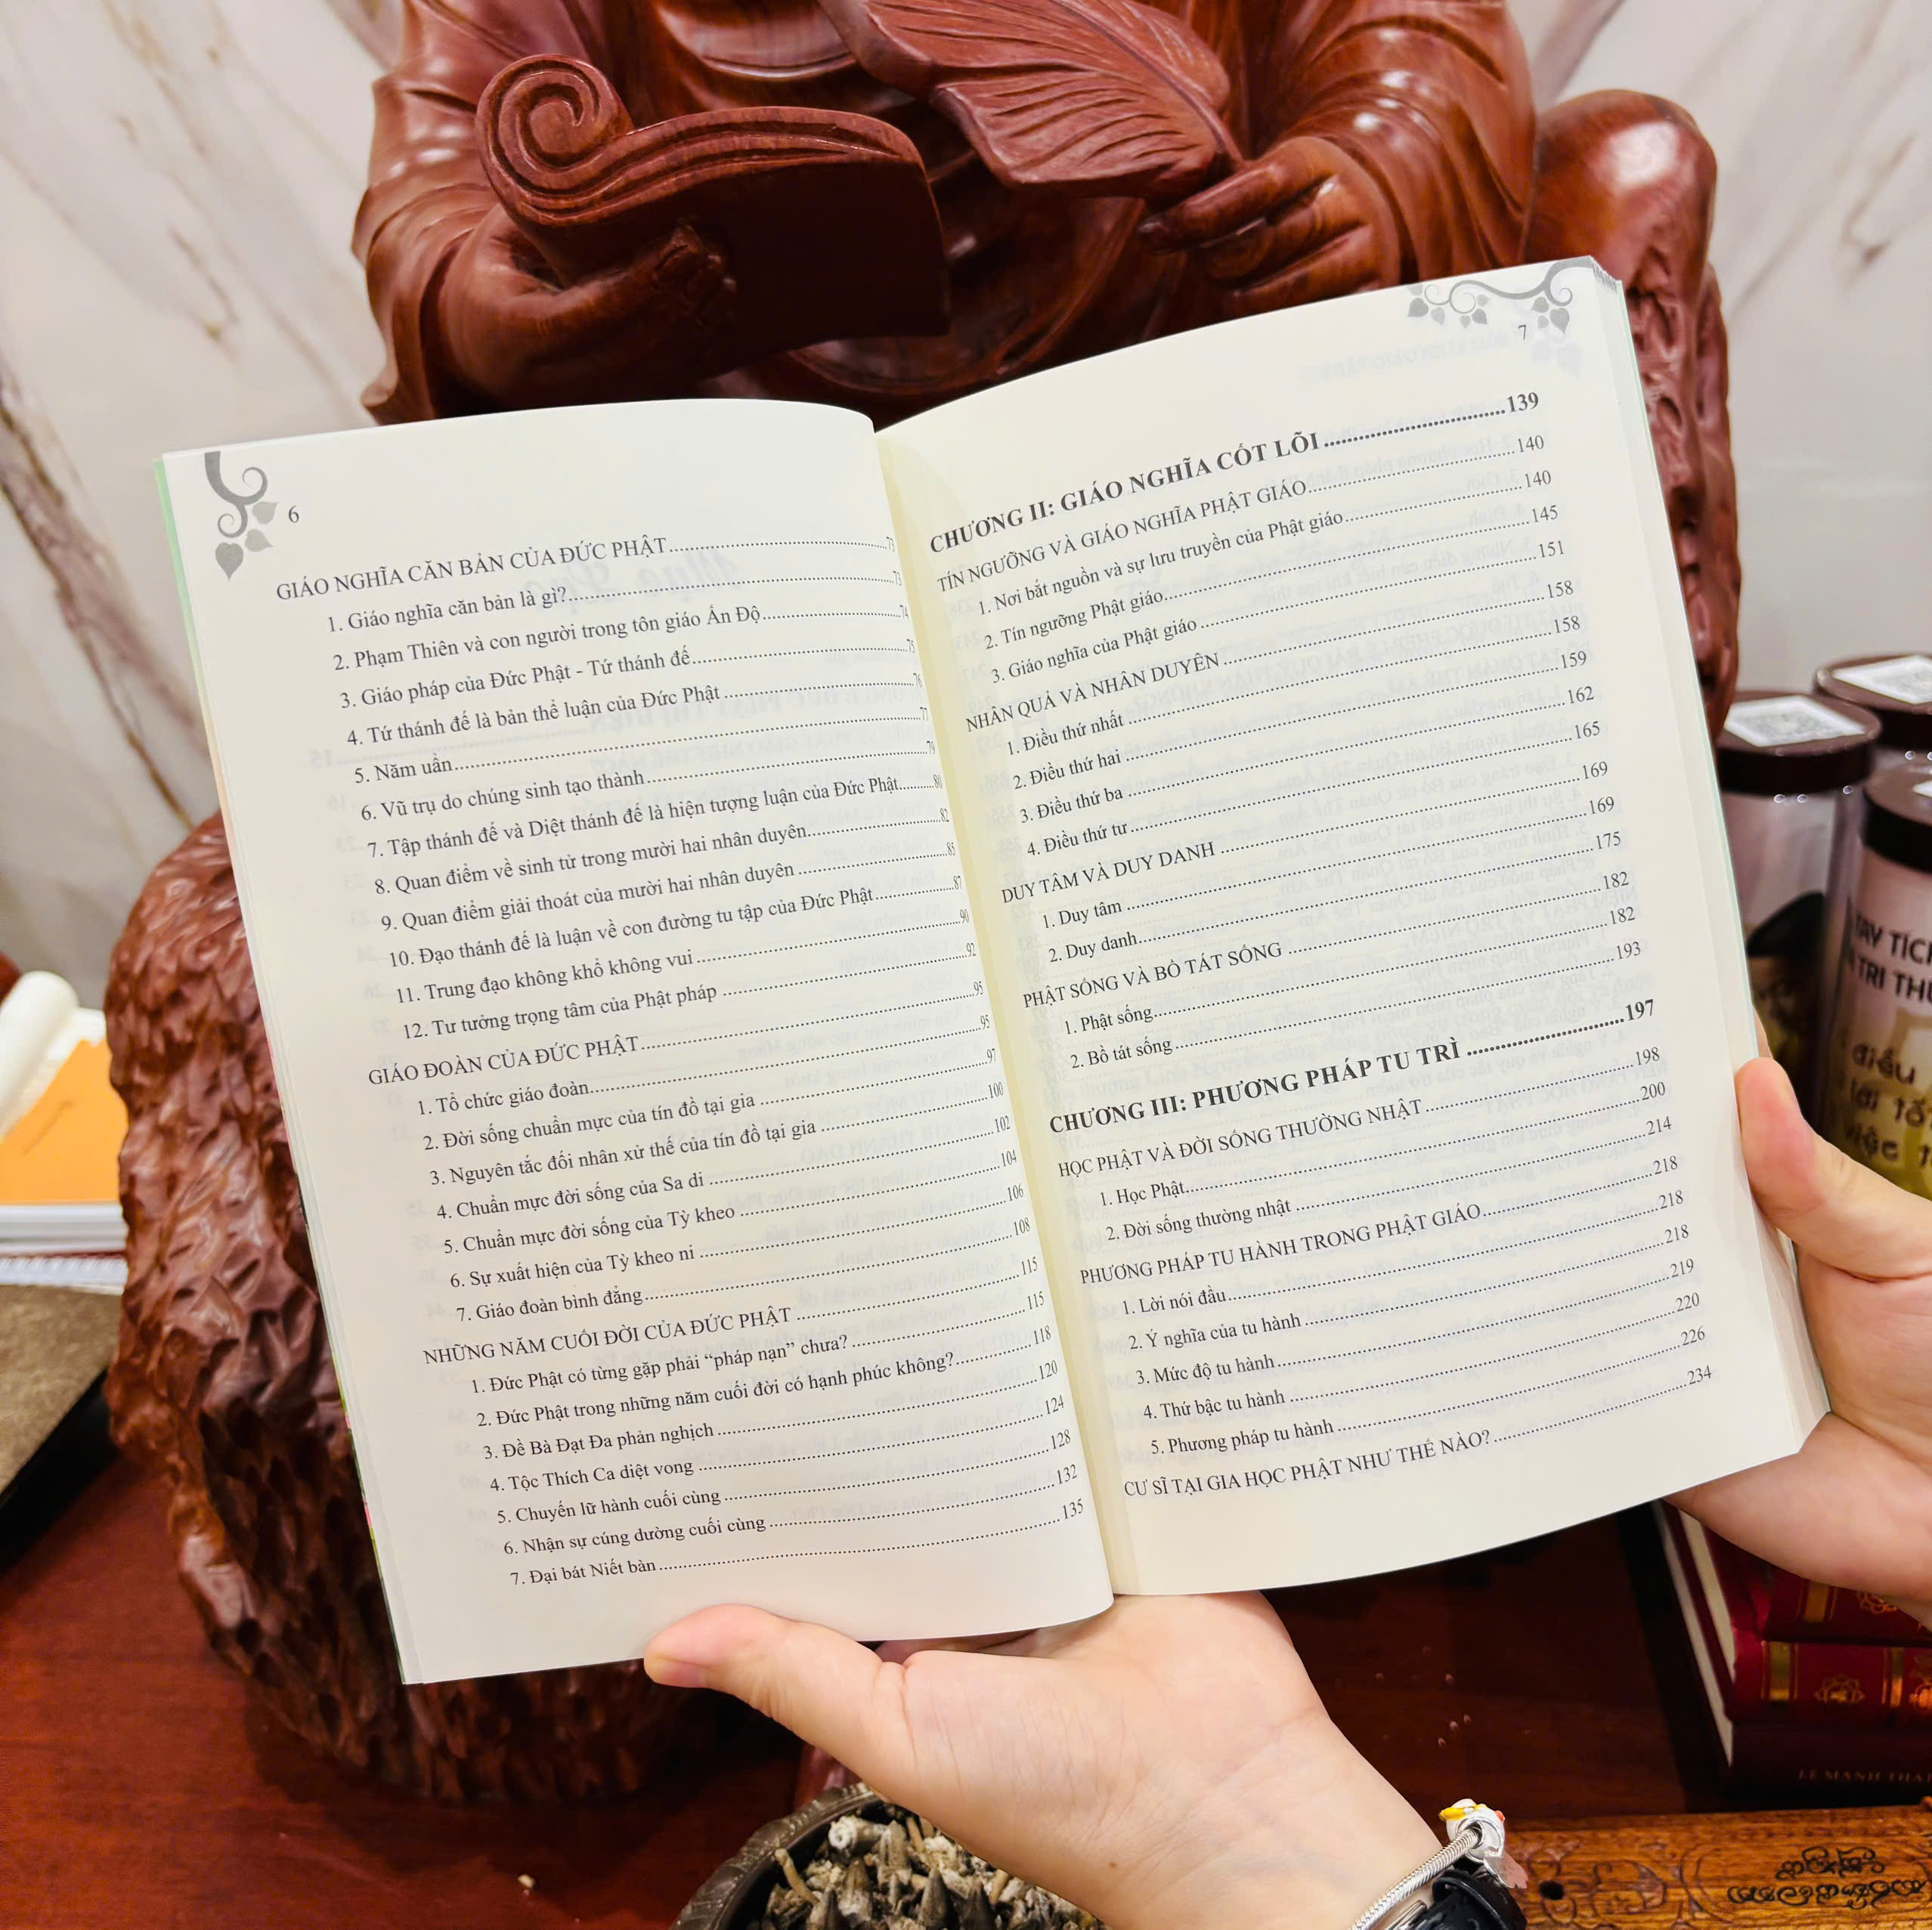 6
GIÁO NGHĨA CĂN BẢN CỦA ĐỨC PHẬT..........73
1. Giáo nghĩa căn bản là gì?..........73
2. Phạm Thiên và con người trong tôn giáo Ấn Độ..........74
3. Giáo pháp của Đức Phật - Tứ thánh đế..........75
4. Tứ thánh đế là bản thể luận của Đức Phật..........76
5. Năm uẩn..........77
6. Vũ trụ do chúng sinh tạo thành..........79
7. Tập thánh đế và Diệt thánh đế là hiện tượng luận của Đức Phật..........80
8. Quan điểm về sinh tử trong mười hai nhân duyên..........82
9. Quan điểm giải thoát của mười hai nhân duyên..........85
10. Đạo thánh đế là luận về con đường tu tập của Đức Phật..........87
11. Trung đạo không khổ không vui..........90
12. Tư tưởng trọng tâm của Phật pháp..........92
GIÁO ĐOÀN CỦA ĐỨC PHẬT..........95
1. Tổ chức giáo đoàn..........95
2. Đời sống chuẩn mực của tín đồ tại gia..........97
3. Nguyên tắc đối nhân xử thế của tín đồ tại gia..........100
4. Chuẩn mực đời sống của Sa di..........102
5. Chuẩn mực đời sống của Tỳ kheo..........104
6. Sự xuất hiện của Tỳ kheo ni..........106
7. Giáo đoàn bình đẳng..........108
NHỮNG NĂM CUỐI ĐỜI CỦA ĐỨC PHẬT..........115
1. Đức Phật có từng gặp phải “pháp nạn” chưa?..........115
2. Đức Phật trong những năm cuối đời có hạnh phúc không?..........118
3. Đề Bà Đạt Đa phản nghịch..........120
4. Tộc Thích Ca diệt vong..........124
5. Chuyến lữ hành cuối cùng..........128
6. Nhận sự cúng dường cuối cùng..........132
7. Đại bát Niết bàn..........135
7
CHƯƠNG II: GIÁO NGHĨA CỐT LÕI..........139
TÍN NGƯỠNG VÀ GIÁO NGHĨA PHẬT GIÁO..........140
1. Nơi bắt nguồn và sự lưu truyền của Phật giáo..........140
2. Tín ngưỡng Phật giáo..........145
3. Giáo nghĩa của Phật giáo..........151
NHÂN QUẢ VÀ NHÂN DUYÊN..........158
1. Điều thứ nhất..........158
2. Điều thứ hai..........159
3. Điều thứ ba..........162
4. Điều thứ tư..........165
DUY TÂM VÀ DUY DANH..........169
1. Duy tâm..........169
2. Duy danh..........175
PHẬT SỐNG VÀ BỒ TÁT SỐNG..........182
1. Phật sống..........182
2. Bồ tát sống..........193
CHƯƠNG III: PHƯƠNG PHÁP TU TRÌ..........197
HỌC PHẬT VÀ ĐỜI SỐNG THƯỜNG NHẬT..........198
1. Học Phật..........200
2. Đời sống thường nhật..........214
PHƯƠNG PHÁP TU HÀNH TRONG PHẬT GIÁO..........218
1. Lời nói đầu..........218
2. Ý nghĩa của tu hành..........218
3. Mức độ tu hành..........219
4. Thứ bậc tu hành..........220
5. Phương pháp tu hành..........226
CƯ SĨ TẠI GIA HỌC PHẬT NHƯ THẾ NÀO?..........234
TAY TÍCH
TRI THỨ
điều
lợi tố
việc
LÊ MẠNH THÁT